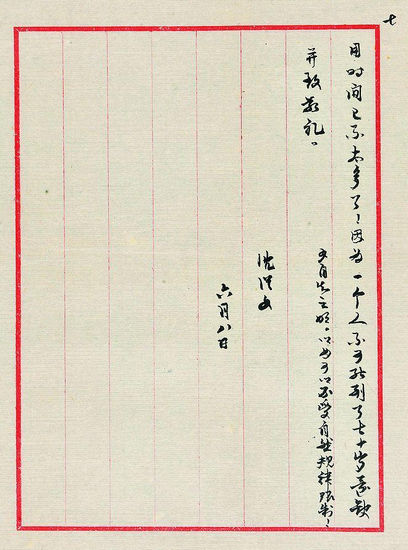 七
用时间已不太多了，因为一个人不可能到了七十岁还缺
乏自知之明，以为可以不受自然规律限制，
并致敬礼。
沈从文
六月八日